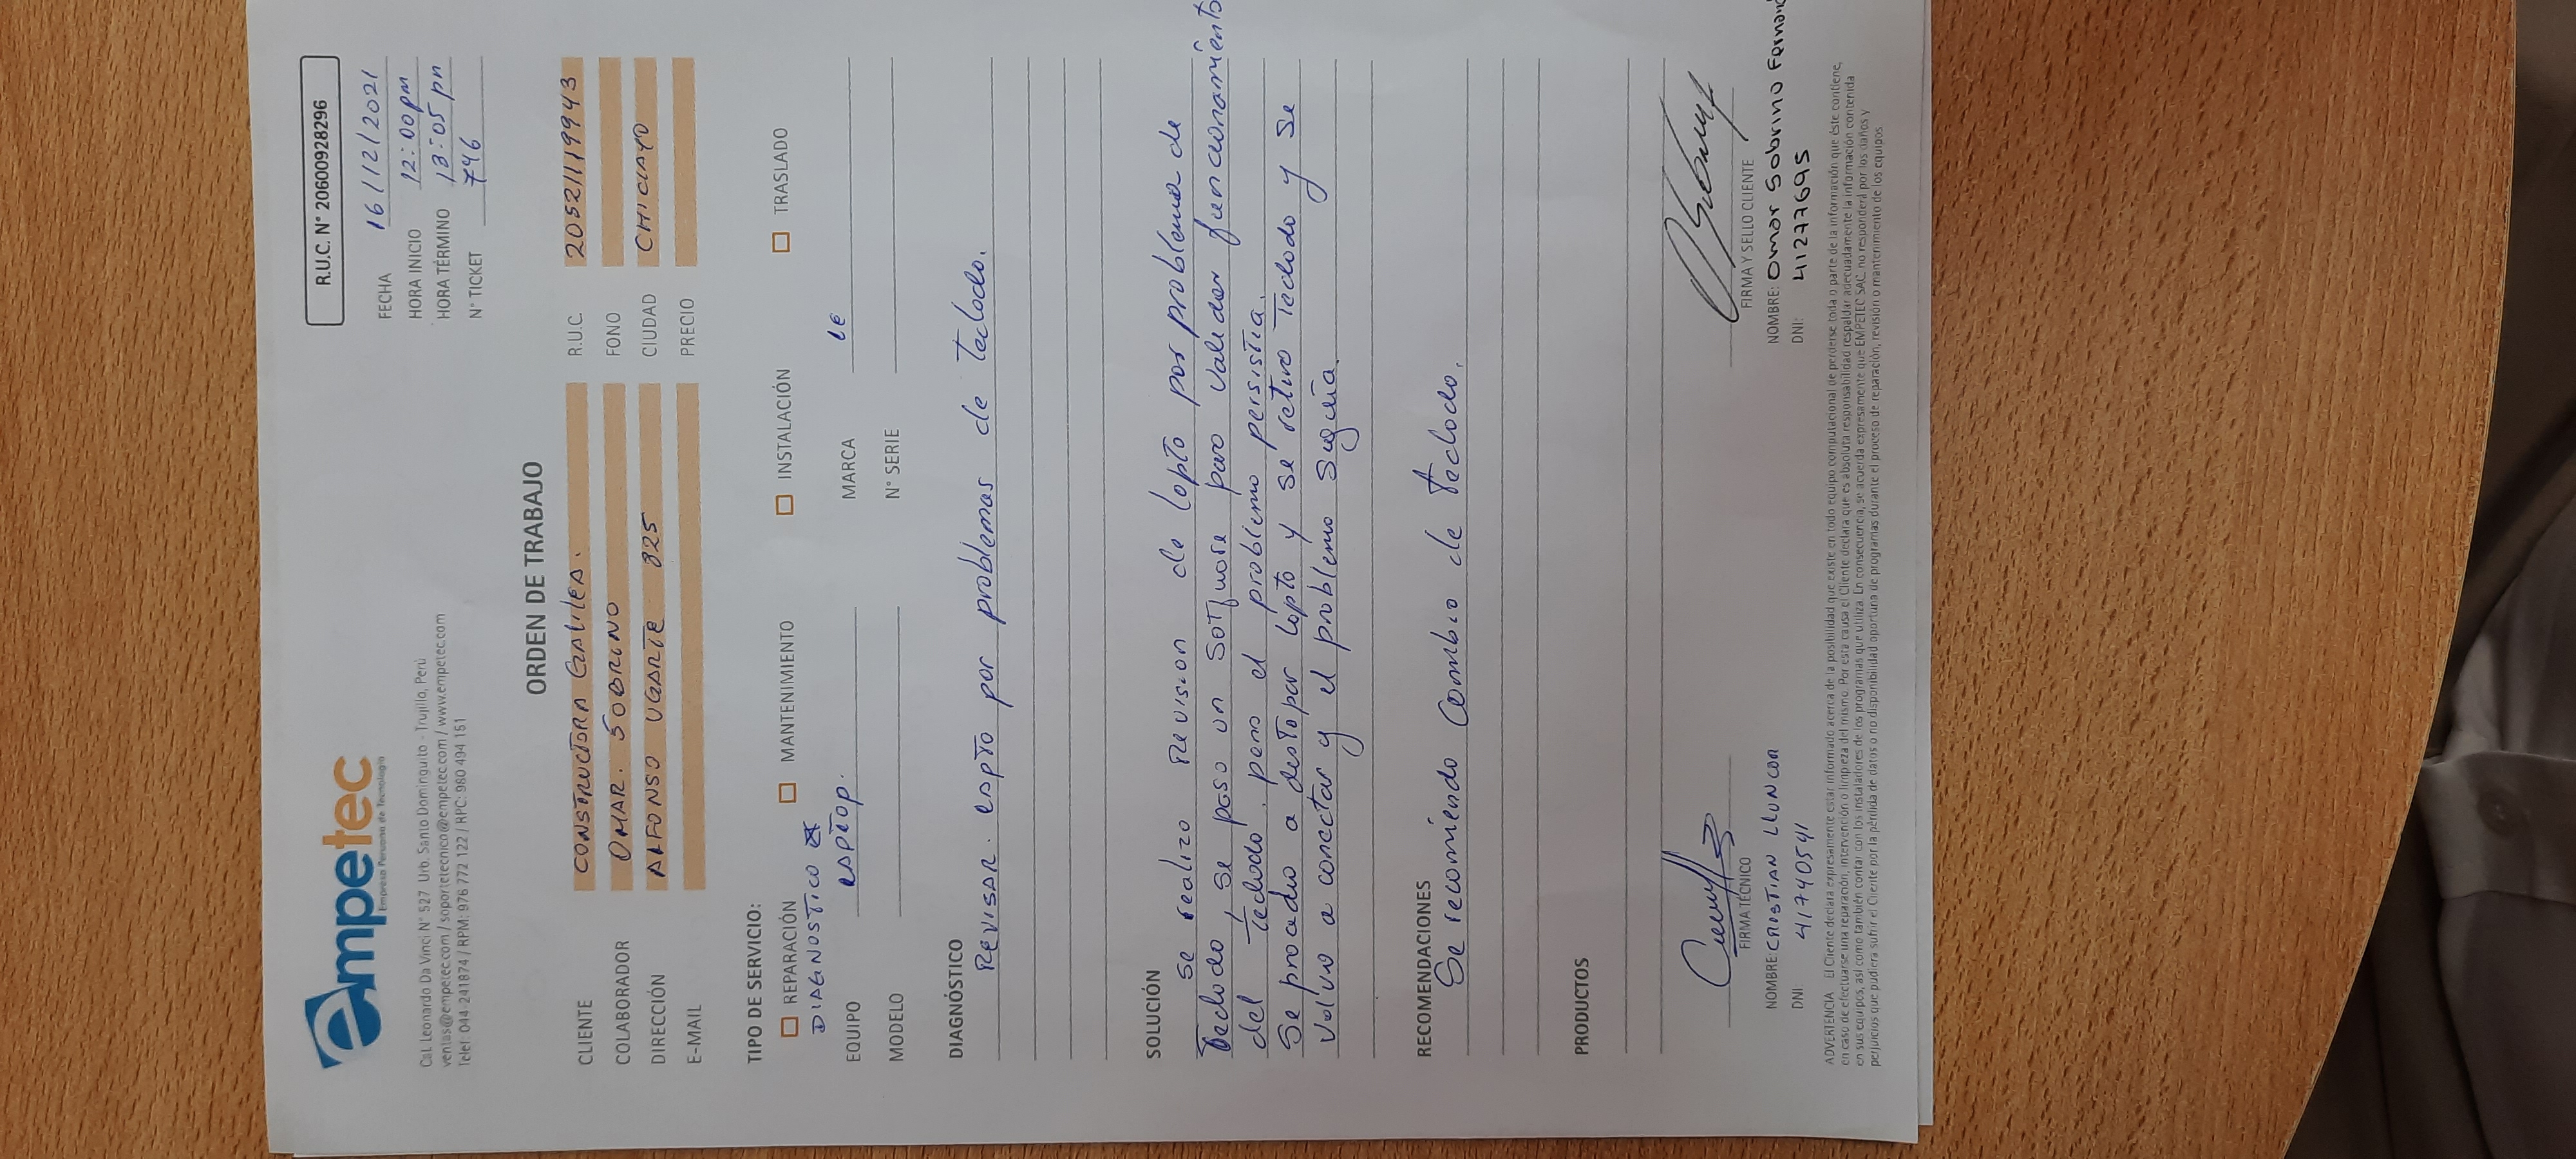 empetec
Empresa Peruana de Tecnología
Cal. Leonardo Da Vinci N° 527 Urb. Santo Dominguito - Trujillo, Perú
ventas@empetec.com / soportetecnico@empetec.com / www.empetec.com
Telef: 044 241874 / RPM: 976 772 122 / RPC: 980 494 151
R.U.C. N° 20600928296
FECHA 16/12/2021
HORA INICIO 12:00pm
HORA TÉRMINO 13:05 pm
N° TICKET 746
ORDEN DE TRABAJO
CLIENTE CONSTRUCTORA GALILEA. R.U.C. 20521119943
COLABORADOR OMAR. SOBRINO FONO
DIRECCIÓN ALFONSO UGARTE 825 CIUDAD CHICLAYO
E-MAIL PRECIO
TIPO DE SERVICIO:
REPARACIÓN MANTENIMIENTO INSTALACIÓN TRASLADO
DIAGNOSTICO
EQUIPO LAPTOP. MARCA
MODELO N° SERIE
DIAGNÓSTICO
Revisar. Lapto por problemas de Teclado.
SOLUCIÓN
se realizo Revision de lapto por problema de
Teclado, se paso un Sotfware para validar funcionamiento
del Teclado. pero el problema persistia.
Se procedio a destapar lapto y se retiro Teclado y se
volvio a conectar y el problema seguia.
RECOMENDACIONES
Se recomienda Cambio de teclado.
PRODUCTOS
FIRMA TÉCNICO
NOMBRE: CRISTIAN LLUNCOR
DNI 41740541
FIRMA Y SELLO CLIENTE
NOMBRE: Omar Sobrino Fernand
DNI: 41277695
ADVERTENCIA El Cliente declara expresamente estar informado acerca de la posibilidad que existe en todo equipo computacional de perderse toda o parte de la información que éste contiene,
en caso de efectuarse una reparación, intervención o limpieza del mismo. Por esta causa el Cliente declara que es absoluta responsabilidad respaldar adecuadamente la información contenida
en sus equipos, así como también contar con los instaladores de los programas que utiliza. En consecuencia, se acuerda expresamente que EMPETEC SAC, no responderá por los daños y
perjuicios que pudiera sufrir el Cliente por la pérdida de datos o no disponibilidad oportuna de programas durante el proceso de reparación, revisión o mantenimiento de los equipos